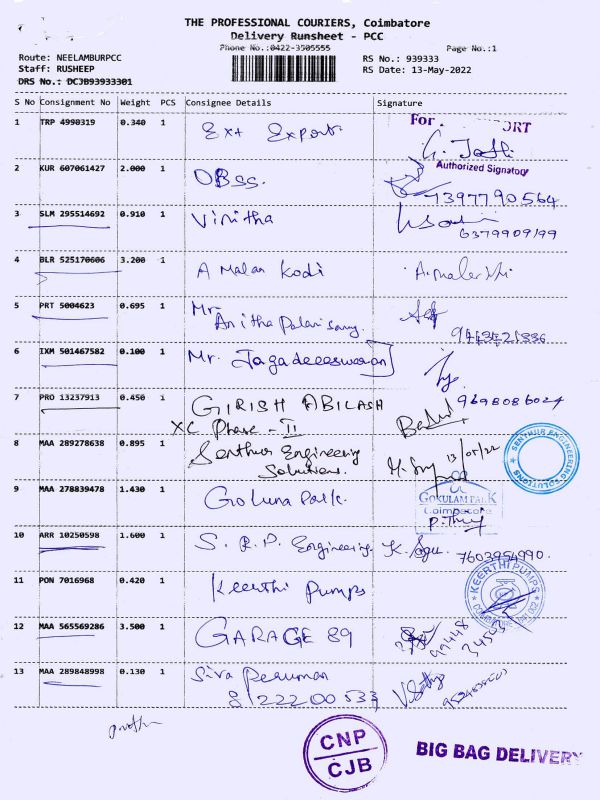 THE PROFESSIONAL COURIERS, Coimbatore
Delivery Runsheet - PCC
Phone No.:0422-3505555
Page No.:1
Route: NEELAMBURPCC
RS No.: 939333
Staff: RUSHEEP
RS Date: 13-May-2022
DRS No.: DCJB93933301
S No Consignment No Weight PCS Consignee Details Signature
1 TRP 4990319 0.340 1 Ext Export. For . ORT
Authorized Signatory
2 KUR 607061427 2.000 1 OBSS. 7397790564
3 SLM 295514692 0.910 1 Vinitha
6379909199
4 BLR 525170606 3.200 1 A Malar Kodi
5 PRT 5004623 0.695 1 Mr.
Anitha Palanisamy.
6 IXM 501467582 0.100 1 Mr. Jagadeeeswaran
7 PRO 13237913 0.450 1 GIRISH ABILASH 9698086024
XC Phase - II
8 MAA 289278638 0.895 1 Senthur Engineering 13/05/22
Solutions.
SENTHUR ENGINEERING SOLUTIONS
9 MAA 278839478 1.430 1 Goluna Park.
GOKULAM PARK
Coimbatore
10 ARR 10250598 1.600 1 S.R.P. Engineering. 7603954990.
11 PON 7016968 0.420 1 Keerthi Pumps
KEERTHI PUMPS
12 MAA 565569286 3.500 1 GARAGE 89
13 MAA 289848998 0.130 1 Siva Peruman
8122200533
CNP
CJB
BIG BAG DELIVERY